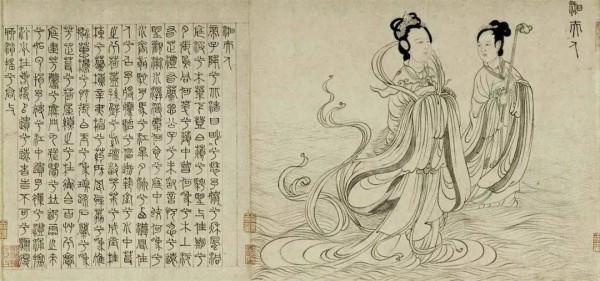 湘夫人
湘夫人
帝子降兮北渚目眇眇兮愁予嫋嫋兮秋風洞
庭波兮木葉下登白薠兮騁望與佳期兮
夕張鳥何萃兮蘋中罾何為兮木上沅
有芷兮澧有蘭思公子兮未敢言荒忽兮遠
望觀流水兮潺湲麋何食兮庭中蛟何為兮
水裔朝馳余馬兮江皋夕濟兮西澨聞佳
人兮召予將騰駕兮偕逝築室兮水中葺
之兮荷蓋蓀壁兮紫壇播芳椒兮成堂桂
棟兮蘭橑辛夷楣兮藥房罔薜荔兮為帷
擗蕙櫋兮既張白玉兮為鎮疏石蘭兮為
芳芷葺兮荷屋繚之兮杜衡合百草兮實
庭建芳馨兮廡門九嶷繽兮並迎靈之來
兮如雲捐余袂兮江中遺余褋兮澧浦搴
汀洲兮杜若將以遺兮遠者時不可兮驟得
聊逍遙兮容與